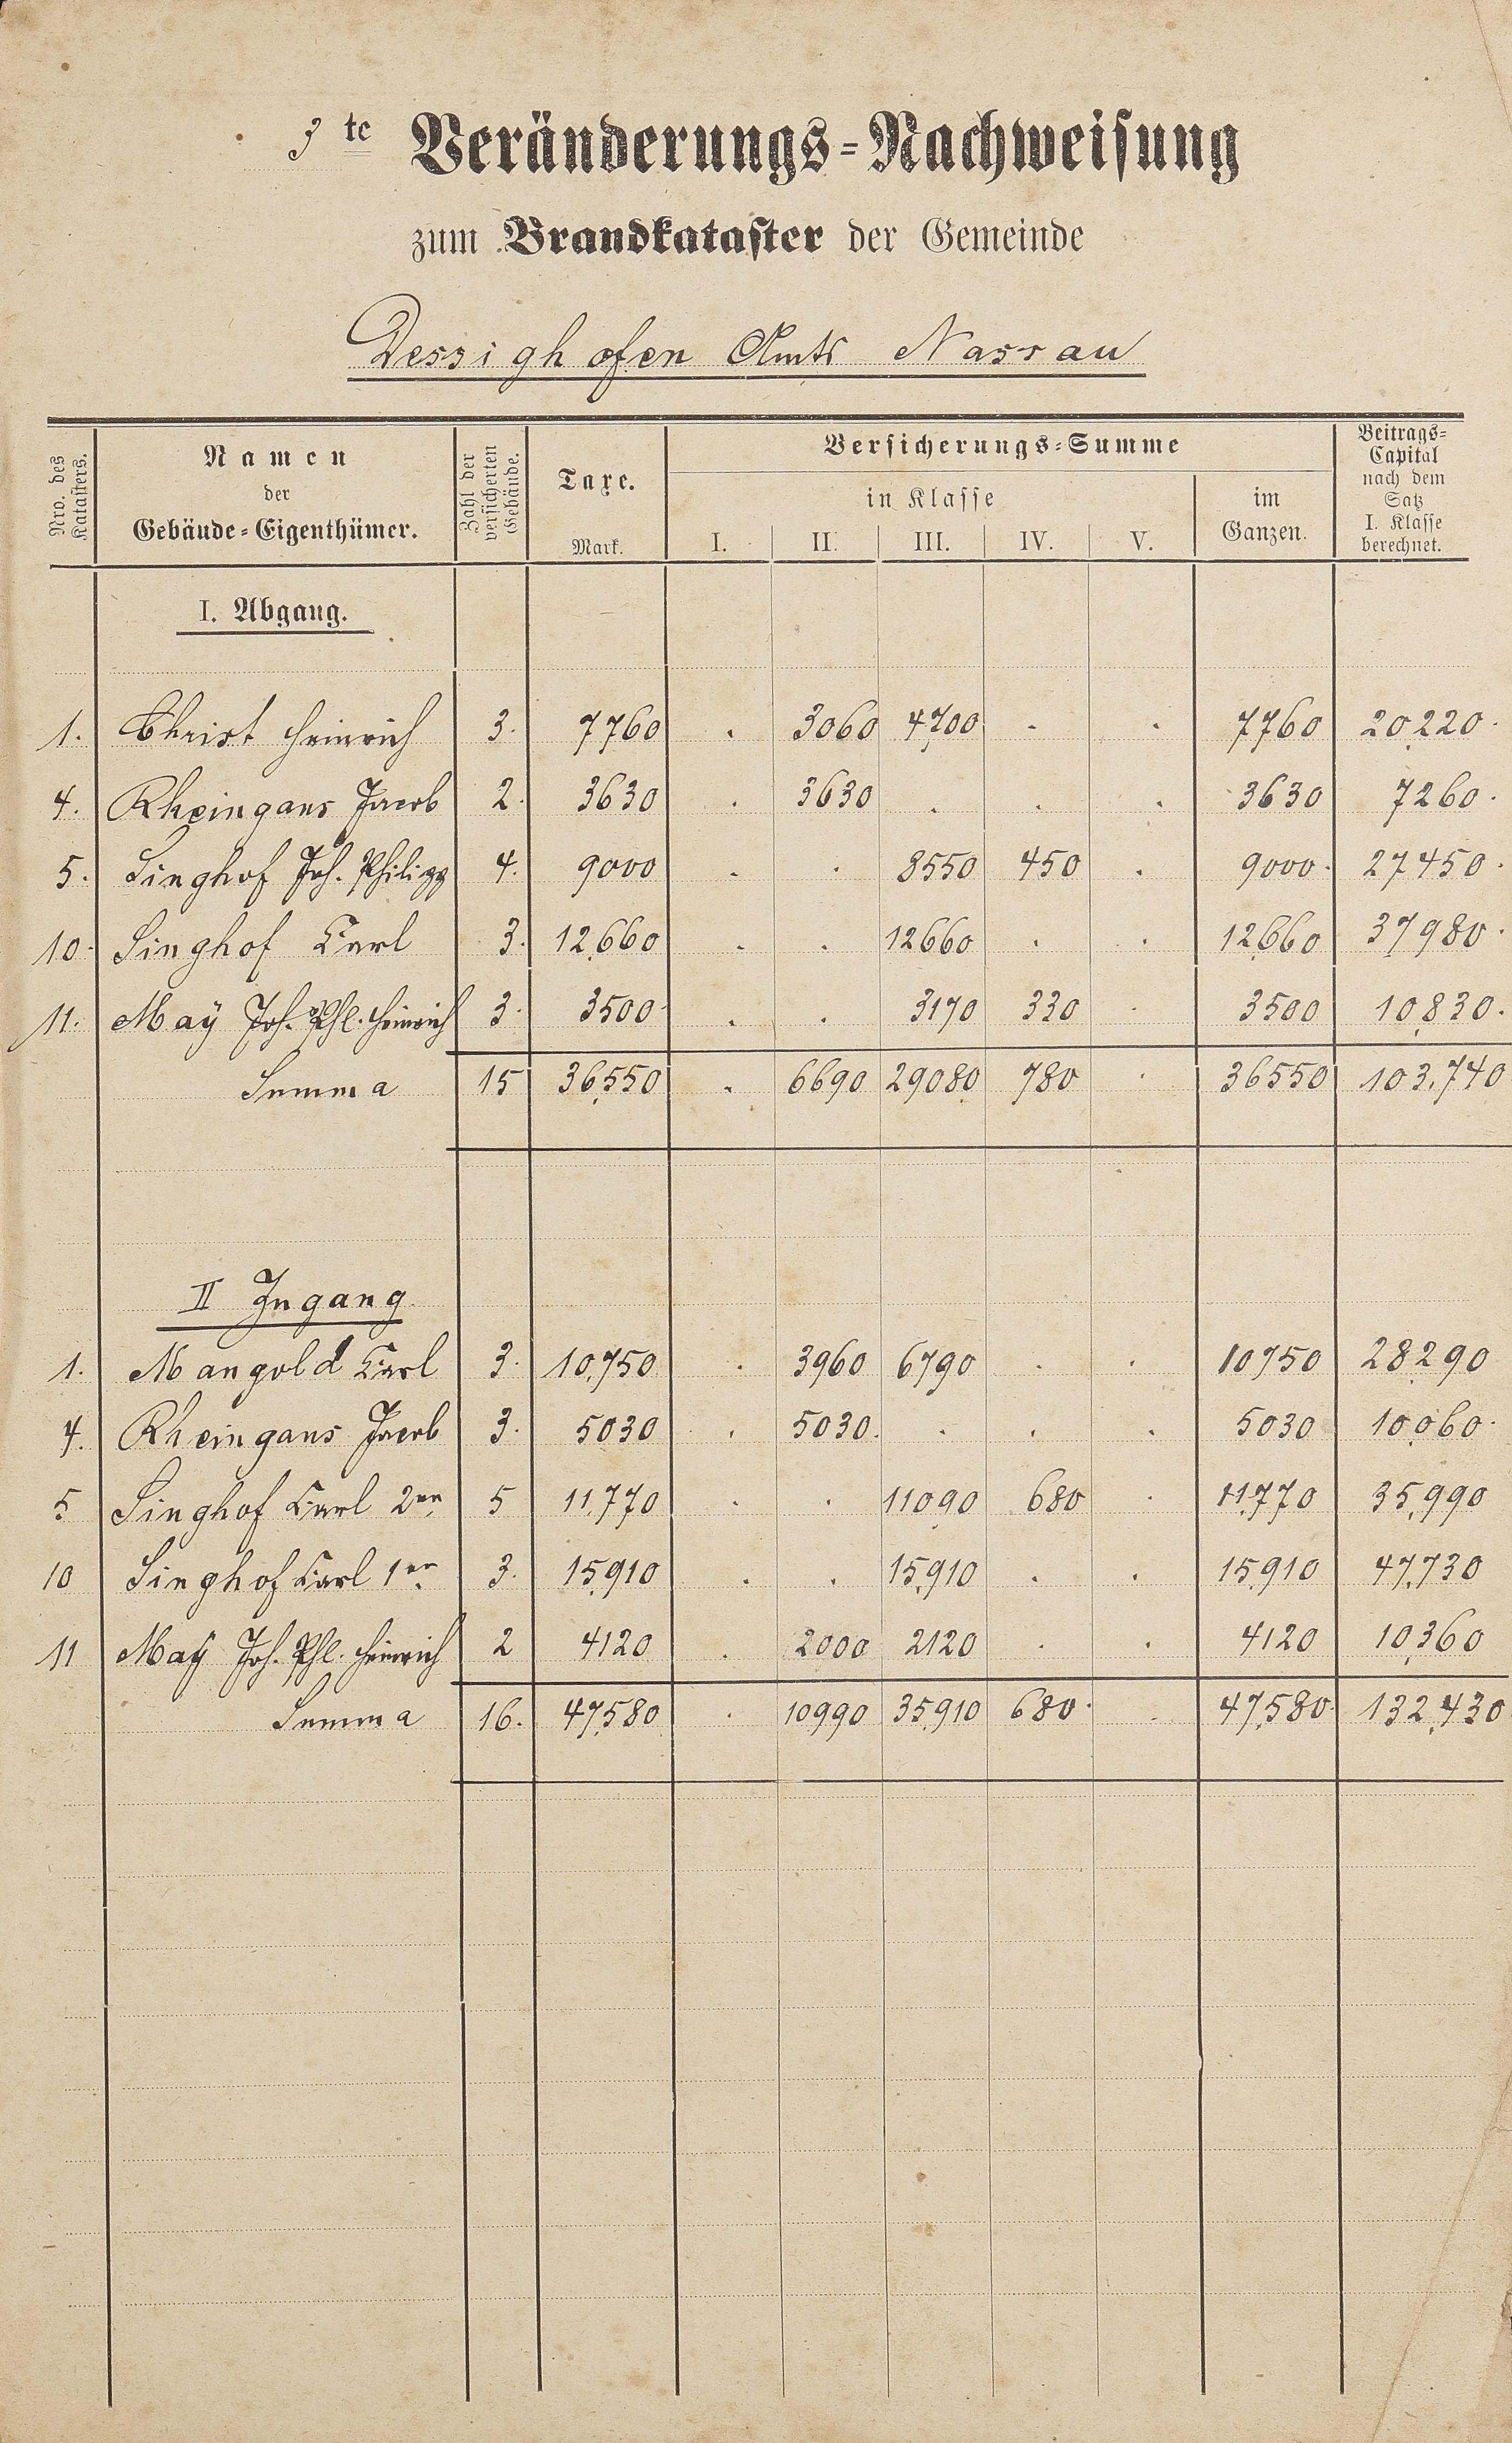 3te Veränderungs=Nachweisung
zum Brandkataster der Gemeinde
Dessighofen Amts Nassau
Nro. des Katasters.
Namen
der
Gebäude=Eigenthümer.
Zahl der versicherten Gebäude.
Taxe.
Mark.
Versicherungs=Summe
in Klasse
I. II. III. IV. V.
im
Ganzen.
Beitrags=
Capital
nach dem
Satz
I. Klasse
berechnet.
I. Abgang.
1. Christ Heinrich 3. 7760 . 3060 4700 . . 7760 20220.
4. Rheingans Jacob 2. 3630 . 3630 . . . 3630 7260.
5. Singhof Joh. Philipp 4. 9000 . . 8550 450 . 9000. 27450.
10. Singhof Carl 3. 12660 . . 12660 . . 12660 37980.
11. Maÿ Joh. Phl. Heinrich 3. 3500 . . 3170 330 . 3500 10830.
Summa 15 36550 . 6690 29080 780 . 36550 103,740
II Zugang
1. Mangold Carl 3. 10,750 . 3960 6790 . . 10750 28290
4. Rheingans Jacob 3. 5030 . 5030. . . . 5030 10060.
5 Singhof Carl 2er 5 11,770 . . 11090 680 . 11,770 35,990
10 Singhof Carl 1er 3. 15910 . . 15,910 . . 15910 47,730
11 Maÿ Joh. Phl. Heinrich 2 4120 . 2000 2120 . . 4120 10,360
Summa 16. 47,580 . 10990 35,910 680. . 47,580. 132,430